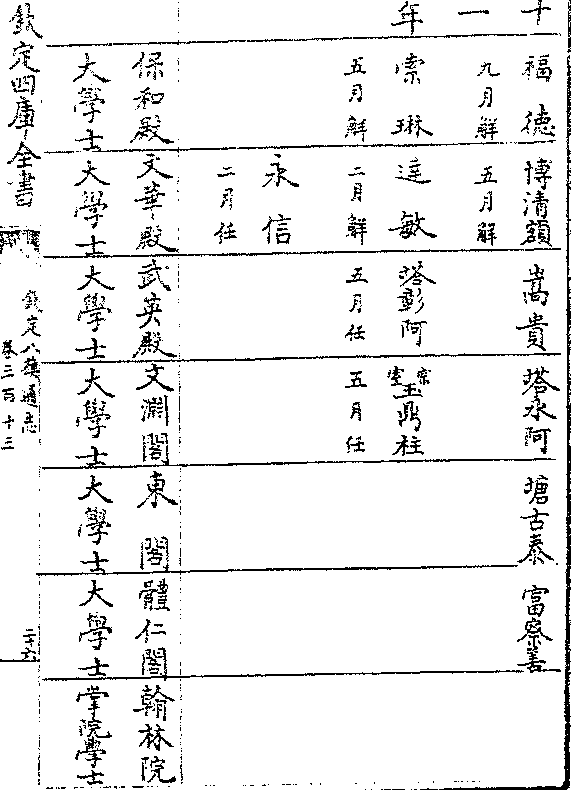 十一年
福德
九月解
索琳
五月解
博清額
五月解
達敏
二月解
永信
二月任
嵩貴
塔彰阿
五月任
塔永阿
宗室玉鼎柱
五月任
塘古泰
富察善
保和殿
大學士
文華殿
大學士
武英殿
大學士
文淵閣
大學士
東閣
大學士
體仁閣
大學士
翰林院
掌院學士
欽定四庫全書
欽定八旗通志
卷三百十三
二十六